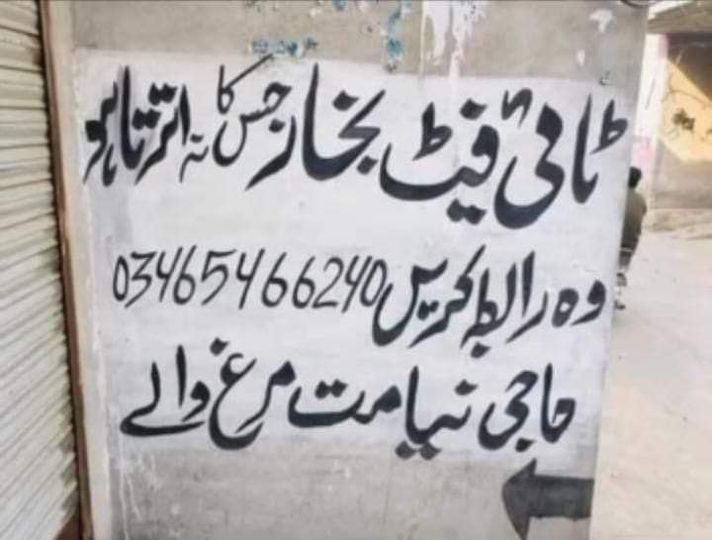 ٹائی فیٹ بخار جس کا نہ اترتا ہو
وہ رابطہ کریں 03465466240
حاجی نیامت مرغ والے